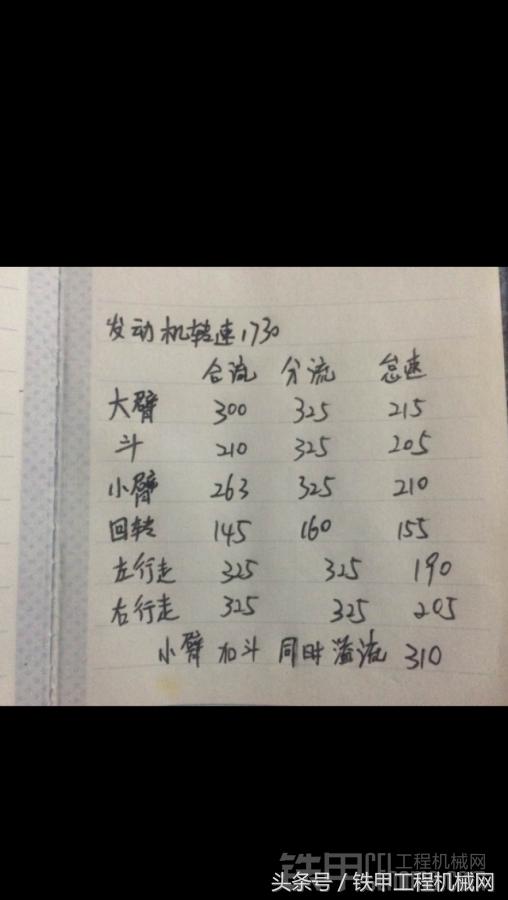 发动机转速1730
合流 分流 怠速
大臂 300 325 215
斗 210 325 205
小臂 263 325 210
回转 145 160 155
左行走 325 325 190
右行走 325 325 205
小臂加斗同时溢流310
铁甲 工程机械网
头条号 / 铁甲工程机械网